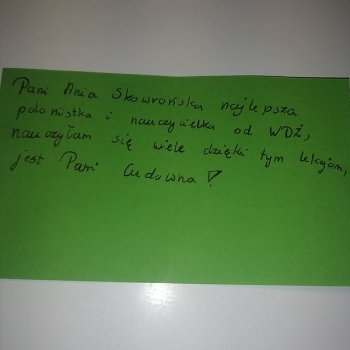 Pani Ania Skowrońska najlepsza
polonistka i nauczycielka od WDŻ,
nauczyłam się wiele dzięki tym lekcjom,
jest Pani Cudowna!